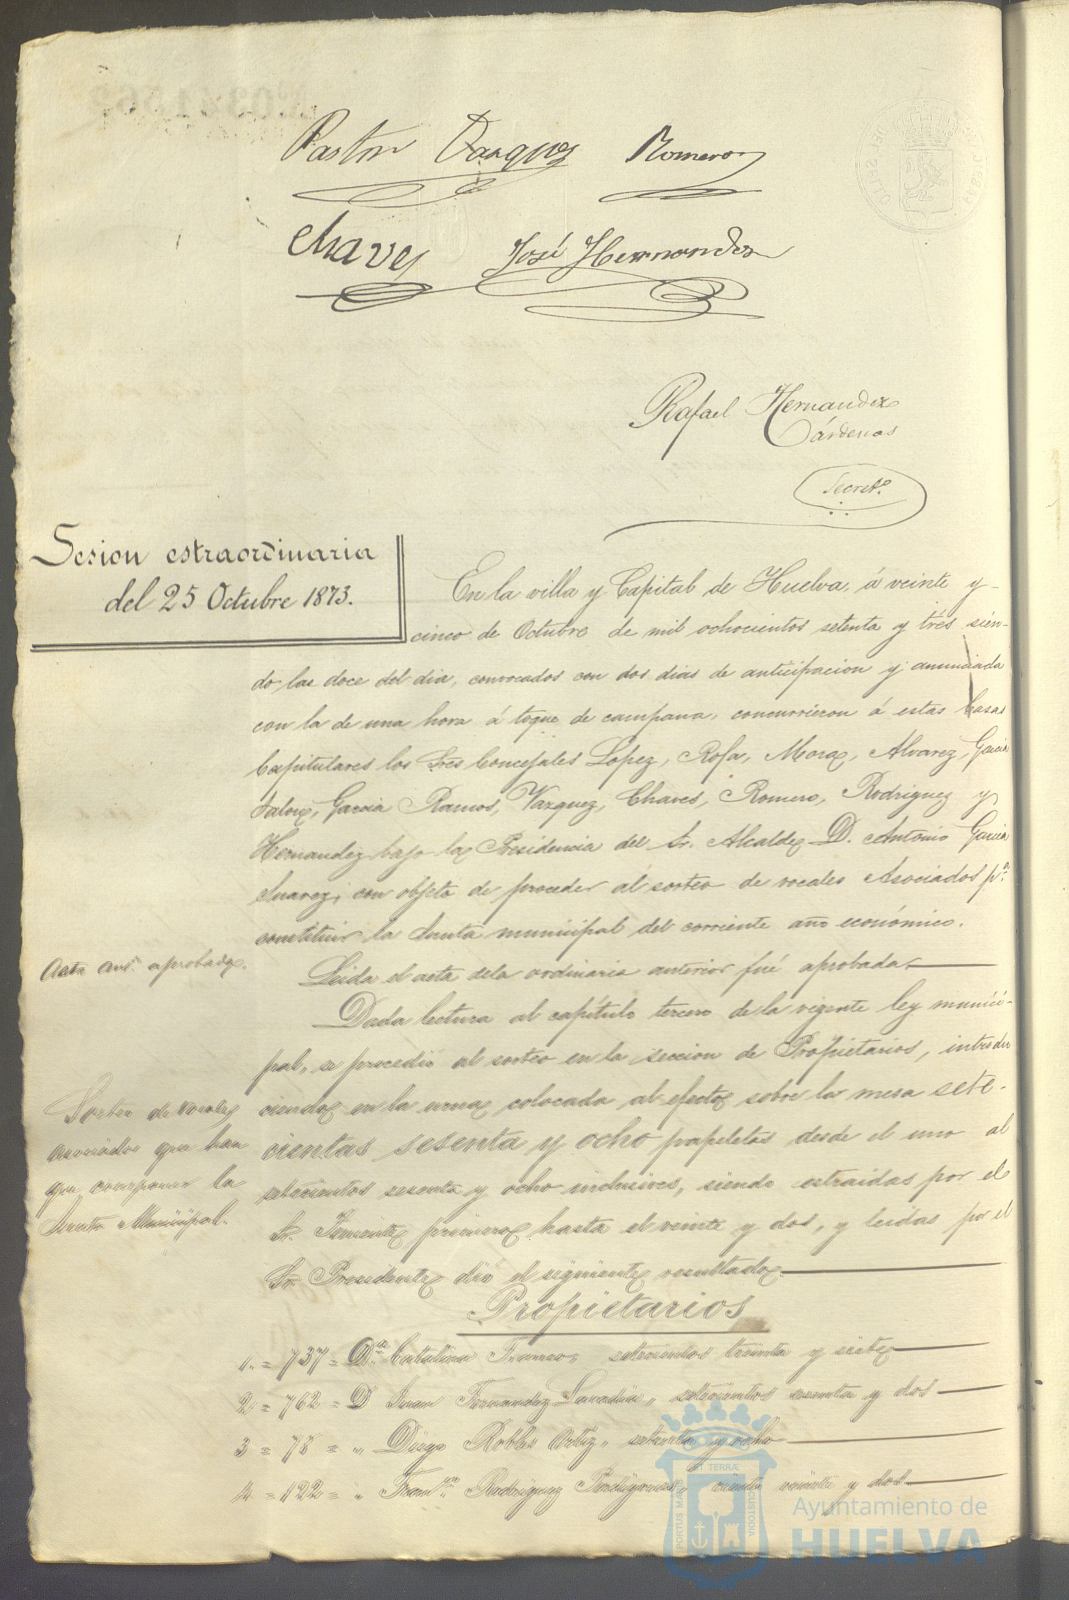 Pastor Vazquez Romero
Chaves José Hernandez
Rafael Hernandez
Cárdenas
Secret.º
Sesion estraordinaria
del 25 Octubre 1873.
En la villa y Capital de Huelva, á veinte y
cinco de Octubre de mil ochocientos setenta y trés sien-
do las doce del dia, convocados con dos dias de anticipacion y anunciada
con la de una hora á toque de campana, concurrieron á estas Casas
Capitulares los Sres Concejales Lopez, Rofa, Mora, Alvarez, Garcia
Garcia Ramos, Vazquez, Chaves, Romero, Rodriguez y
Hernandez bajo la Presidencia del Sr. Alcalde D. Antonio Garcia
Suarez, con objeto de proceder al sorteo de vocales Asociados p.ª
constituir la Junta municipal del corriente año económico.
Acta ant.r aprobada.
Leida el acta dela ordinaria anterior fué aprobada.
Dada lectura al capítulo tercero de la vigente ley munici-
pal, se procedió al sorteo en la seccion de Propietarios, introdu
ciendo en la urna colocada al efecto sobre la mesa sete-
cientas sesenta y ocho papeletas desde el uno al
setecientos sesenta y ocho inclusives, siendo estraidas por el
Sr. Teniente primero hasta el veinte y dos, y leidas por el
Sr. Presidente dió el siguiente resultado.
Sorteo de vocales
asociados que han
que componer la
Junta Municipal.
Propietarios
1. = 737 = D.ª Catalina Franco, setecientos treinta y siete
2 = 762 = D Juan Fernandez " setecientos sesenta y dos
3 = 78 = " Diego Robles Ortiz " setenta y ocho
4 = 122 = " Fran.co Rodriguez ciento veinte y dos
PORTUS MARIS ET TERRÆ CUSTODIA
Ayuntamiento de
HUELVA